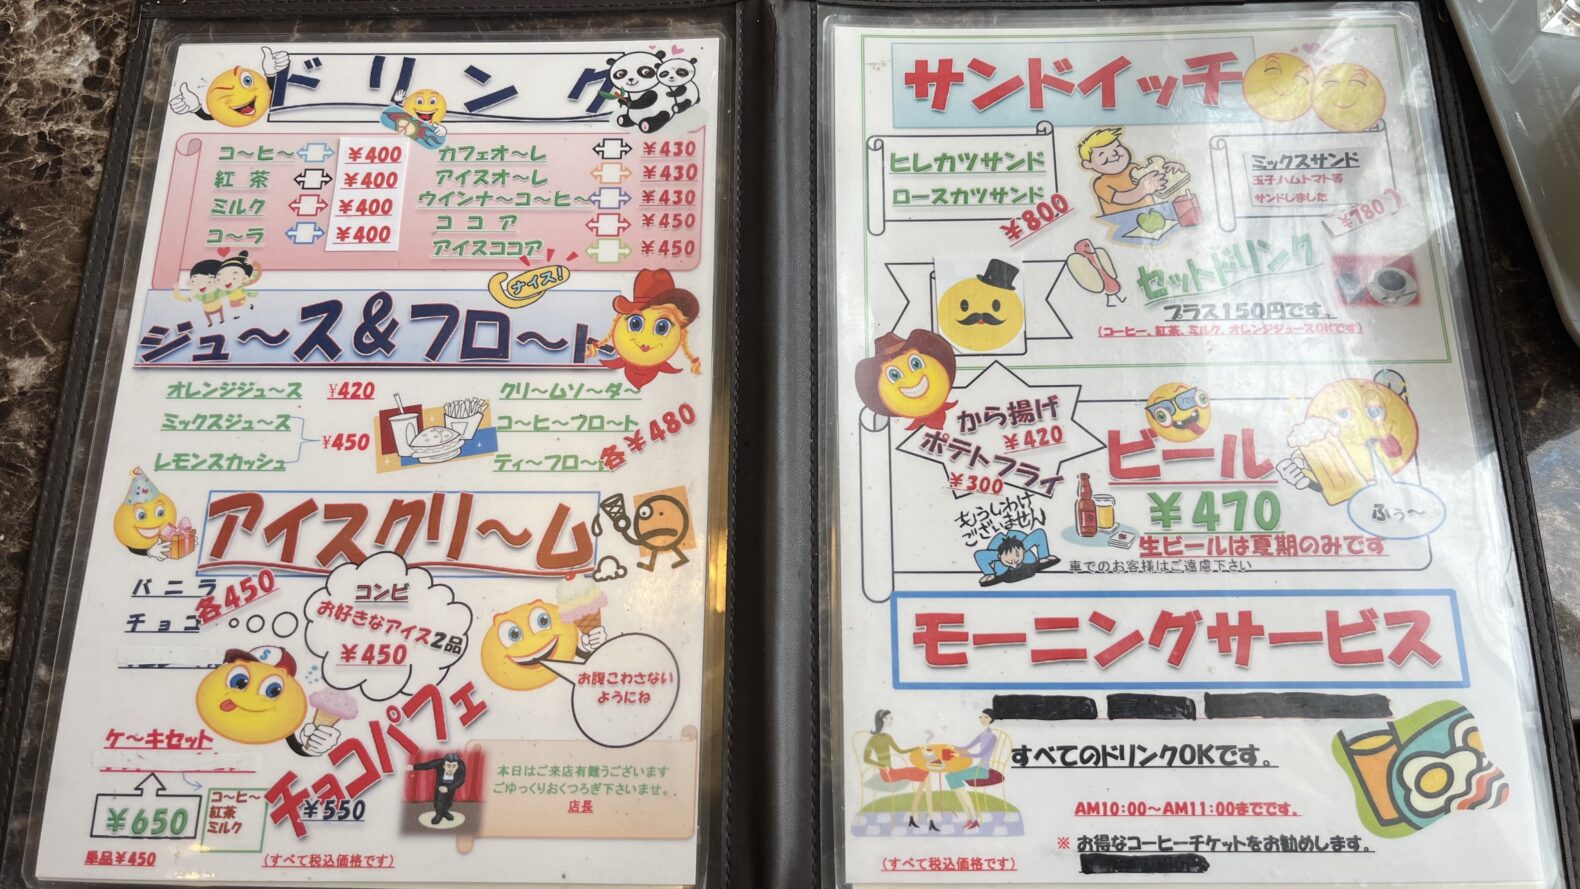 ドリンク
コ〜ヒ〜 ¥400
紅茶 ¥400
ミルク ¥400
コ〜ラ ¥400
カフェオ〜レ ¥430
アイスオ〜レ ¥430
ウインナ〜コ〜ヒ〜 ¥430
ココア ¥450
アイスココア ¥450
ナイス!
ジュ〜ス&フロ〜ト
オレンジジュ〜ス ¥420
ミックスジュ〜ス
¥450
レモンスカッシュ
クリ〜ムソ〜ダ〜
コ〜ヒ〜フロ〜ト
ティ〜フロ〜
各¥480
アイスクリ〜ム
バニラ
チョコ
各450
コンビ
お好きなアイス2品
¥450
お腹こわさない
ようにね
ケ〜キセット
¥650
コ〜ヒ〜
紅茶
ミルク
単品¥450
チョコパフェ
¥550
本日はご来店有難うございます
ごゆっくりおくつろぎ下さいませ。
店長
(すべて税込価格です)
サンドイッチ
ヒレカツサンド
ロースカツサンド
¥800
ミックスサンド
玉子ハムトマト等
サンドしました
¥780
セットドリンク
プラス150円です。
(コーヒー、紅茶、ミルク、オレンジジュースOKです)
から揚げ
¥420
ポテトフライ
¥300
もうしわけ
ございません
ビール
¥470
生ビールは夏期のみです
車でのお客様はご遠慮下さい
ふぅ〜
モーニングサービス
すべてのドリンクOKです。
AM10:00〜AM11:00までです。
※ お得なコーヒーチケットをお勧めします。
(すべて税込価格です)